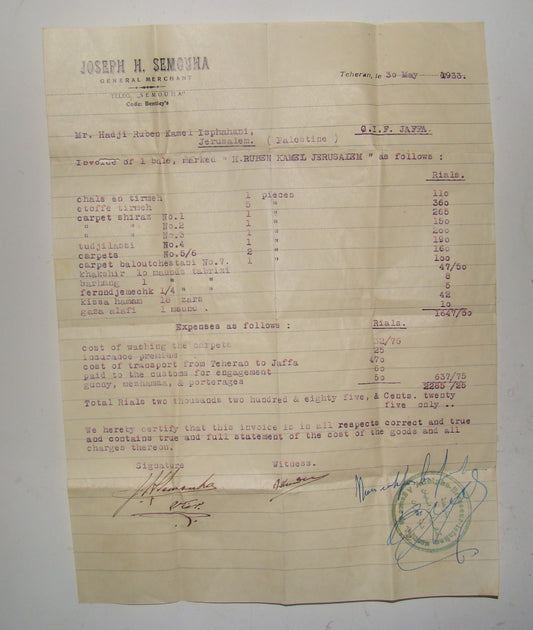 JOSEPH H. SEMOUHA
GENERAL MERCHANT
TELEG. "SEMOUHA"
Code: Bentley's
Teheran, le 30 May 1933.
Mr. Hadji Ruben Kamel Isphahani,
Jerusalem. ( Palestine )
C.I.F. JAFFA.
Invoice of 1 bale, marked " H.RUBEN KAMEL JERUSALEM " as follows :
Rials.
chale eo tirmeh 1 pieces 110
etoffe tirmeh 5 " 360
carpet shiraz No.1 1 " 265
" " No.2 1 " 150
" " No.3 1 " 200
tudjilassi No.4 1 " 190
carpets No.5/6 2 " 160
carpet baloutchestani No.7. 1 " 100
khakshir 10 maunds tabrizi 47/50
barhang 1 " " 8
ferondjemechk 1/4 " " 5
kissa hamam 18 zars 42
gaza alafi 1 maund . 10
1647/50
Expenses as follows : Rials.
cost of washing the carpets 32/75
insurance premium 25
cost of transport from Teheran to Jaffa 470
paid to the customs for engagement 60
gunny, meshamma, & porterages 50 637/75
2285 /25
Total Rials two thousands two hundred & eighty five, & Cents. twenty
five only ..
We hereby certify that this invoice is in all respects correct and true
and contains true and full statement of the cost of the goods and all
charges thereon.
Signature Witness.